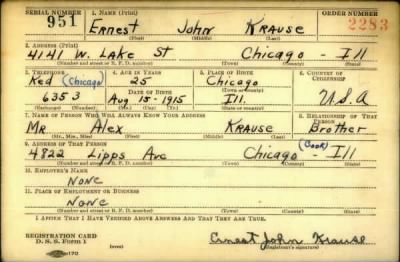 SERIAL NUMBER 1. NAME (Print) ORDER NUMBER
951 Ernest John Krause 2283
(First) (Middle) (Last)
2. ADDRESS (Print)
4141 W. Lake St Chicago - Ill
(Number and street or R. F. D. number) (Town) (County) (State)
3. TELEPHONE 4. AGE IN YEARS 5. PLACE OF BIRTH 6. COUNTRY OF CITIZENSHIP
Ked (Chicago) 25 Chicago
DATE OF BIRTH (Town or county)
6353 Aug 15-1915 Ill. U.S.A
(Exchange) (Number) (Mo.) (Day) (Yr.) (State or country)
7. NAME OF PERSON WHO WILL ALWAYS KNOW YOUR ADDRESS 8. RELATIONSHIP OF THAT PERSON
Mr Alex Krause Brother
(Mr., Mrs., Miss) (First) (Middle) (Last)
9. ADDRESS OF THAT PERSON
4822 Lipps Ave Chicago (Cook) - Ill
(Number and street or R. F. D. number) (Town) (County) (State)
10. EMPLOYER'S NAME
None
11. PLACE OF EMPLOYMENT OR BUSINESS
None
(Number and street or R. F. D. number) (Town) (County) (State)
I AFFIRM THAT I HAVE VERIFIED ABOVE ANSWERS AND THAT THEY ARE TRUE.
REGISTRATION CARD
D. S. S. Form 1 Ernest John Krause
(Registrant's signature)